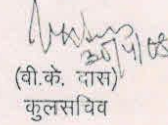 30/4/08
(वी.के. दास)
कुलसचिव